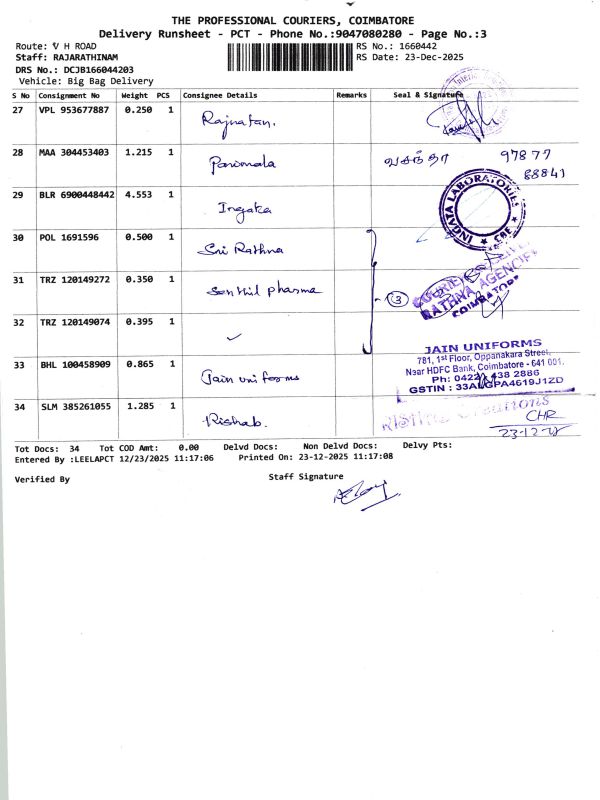 THE PROFESSIONAL COURIERS, COIMBATORE
Delivery Runsheet - PCT - Phone No.:9047080280 - Page No.:3
Route: V H ROAD
RS No.: 1660442
Staff: RAJARATHINAM
RS Date: 23-Dec-2025
DRS No.: DCJB166044203
Vehicle: Big Bag Delivery
S No Consignment No Weight PCS Consignee Details Remarks Seal & Signature
27 VPL 953677887 0.250 1 Rajratan.
28 MAA 304453403 1.215 1 Parimala வசந்தா 97877
88841
29 BLR 6900448442 4.553 1 Ingata
INGATA LABORATORIES
CBE
30 POL 1691596 0.500 1 Sri Rathna
31 TRZ 120149272 0.350 1 Senthil pharma 3
RATHNA AGENCIES
COIMBATORE
32 TRZ 120149074 0.395 1
33 BHL 100458909 0.865 1 Jain uniforms
JAIN UNIFORMS
781, 1st Floor, Oppanakara Street,
Near HDFC Bank, Coimbatore - 641 001.
Ph: 0422 438 2886
GSTIN : 33A GPA4619J1ZD
34 SLM 385261055 1.285 1 Rishab.
Creations
CHR
23-12-
Tot Docs: 34 Tot COD Amt: 0.00 Delvd Docs: Non Delvd Docs: Delvy Pts:
Entered By :LEELAPCT 12/23/2025 11:17:06 Printed On: 23-12-2025 11:17:08
Verified By
Staff Signature